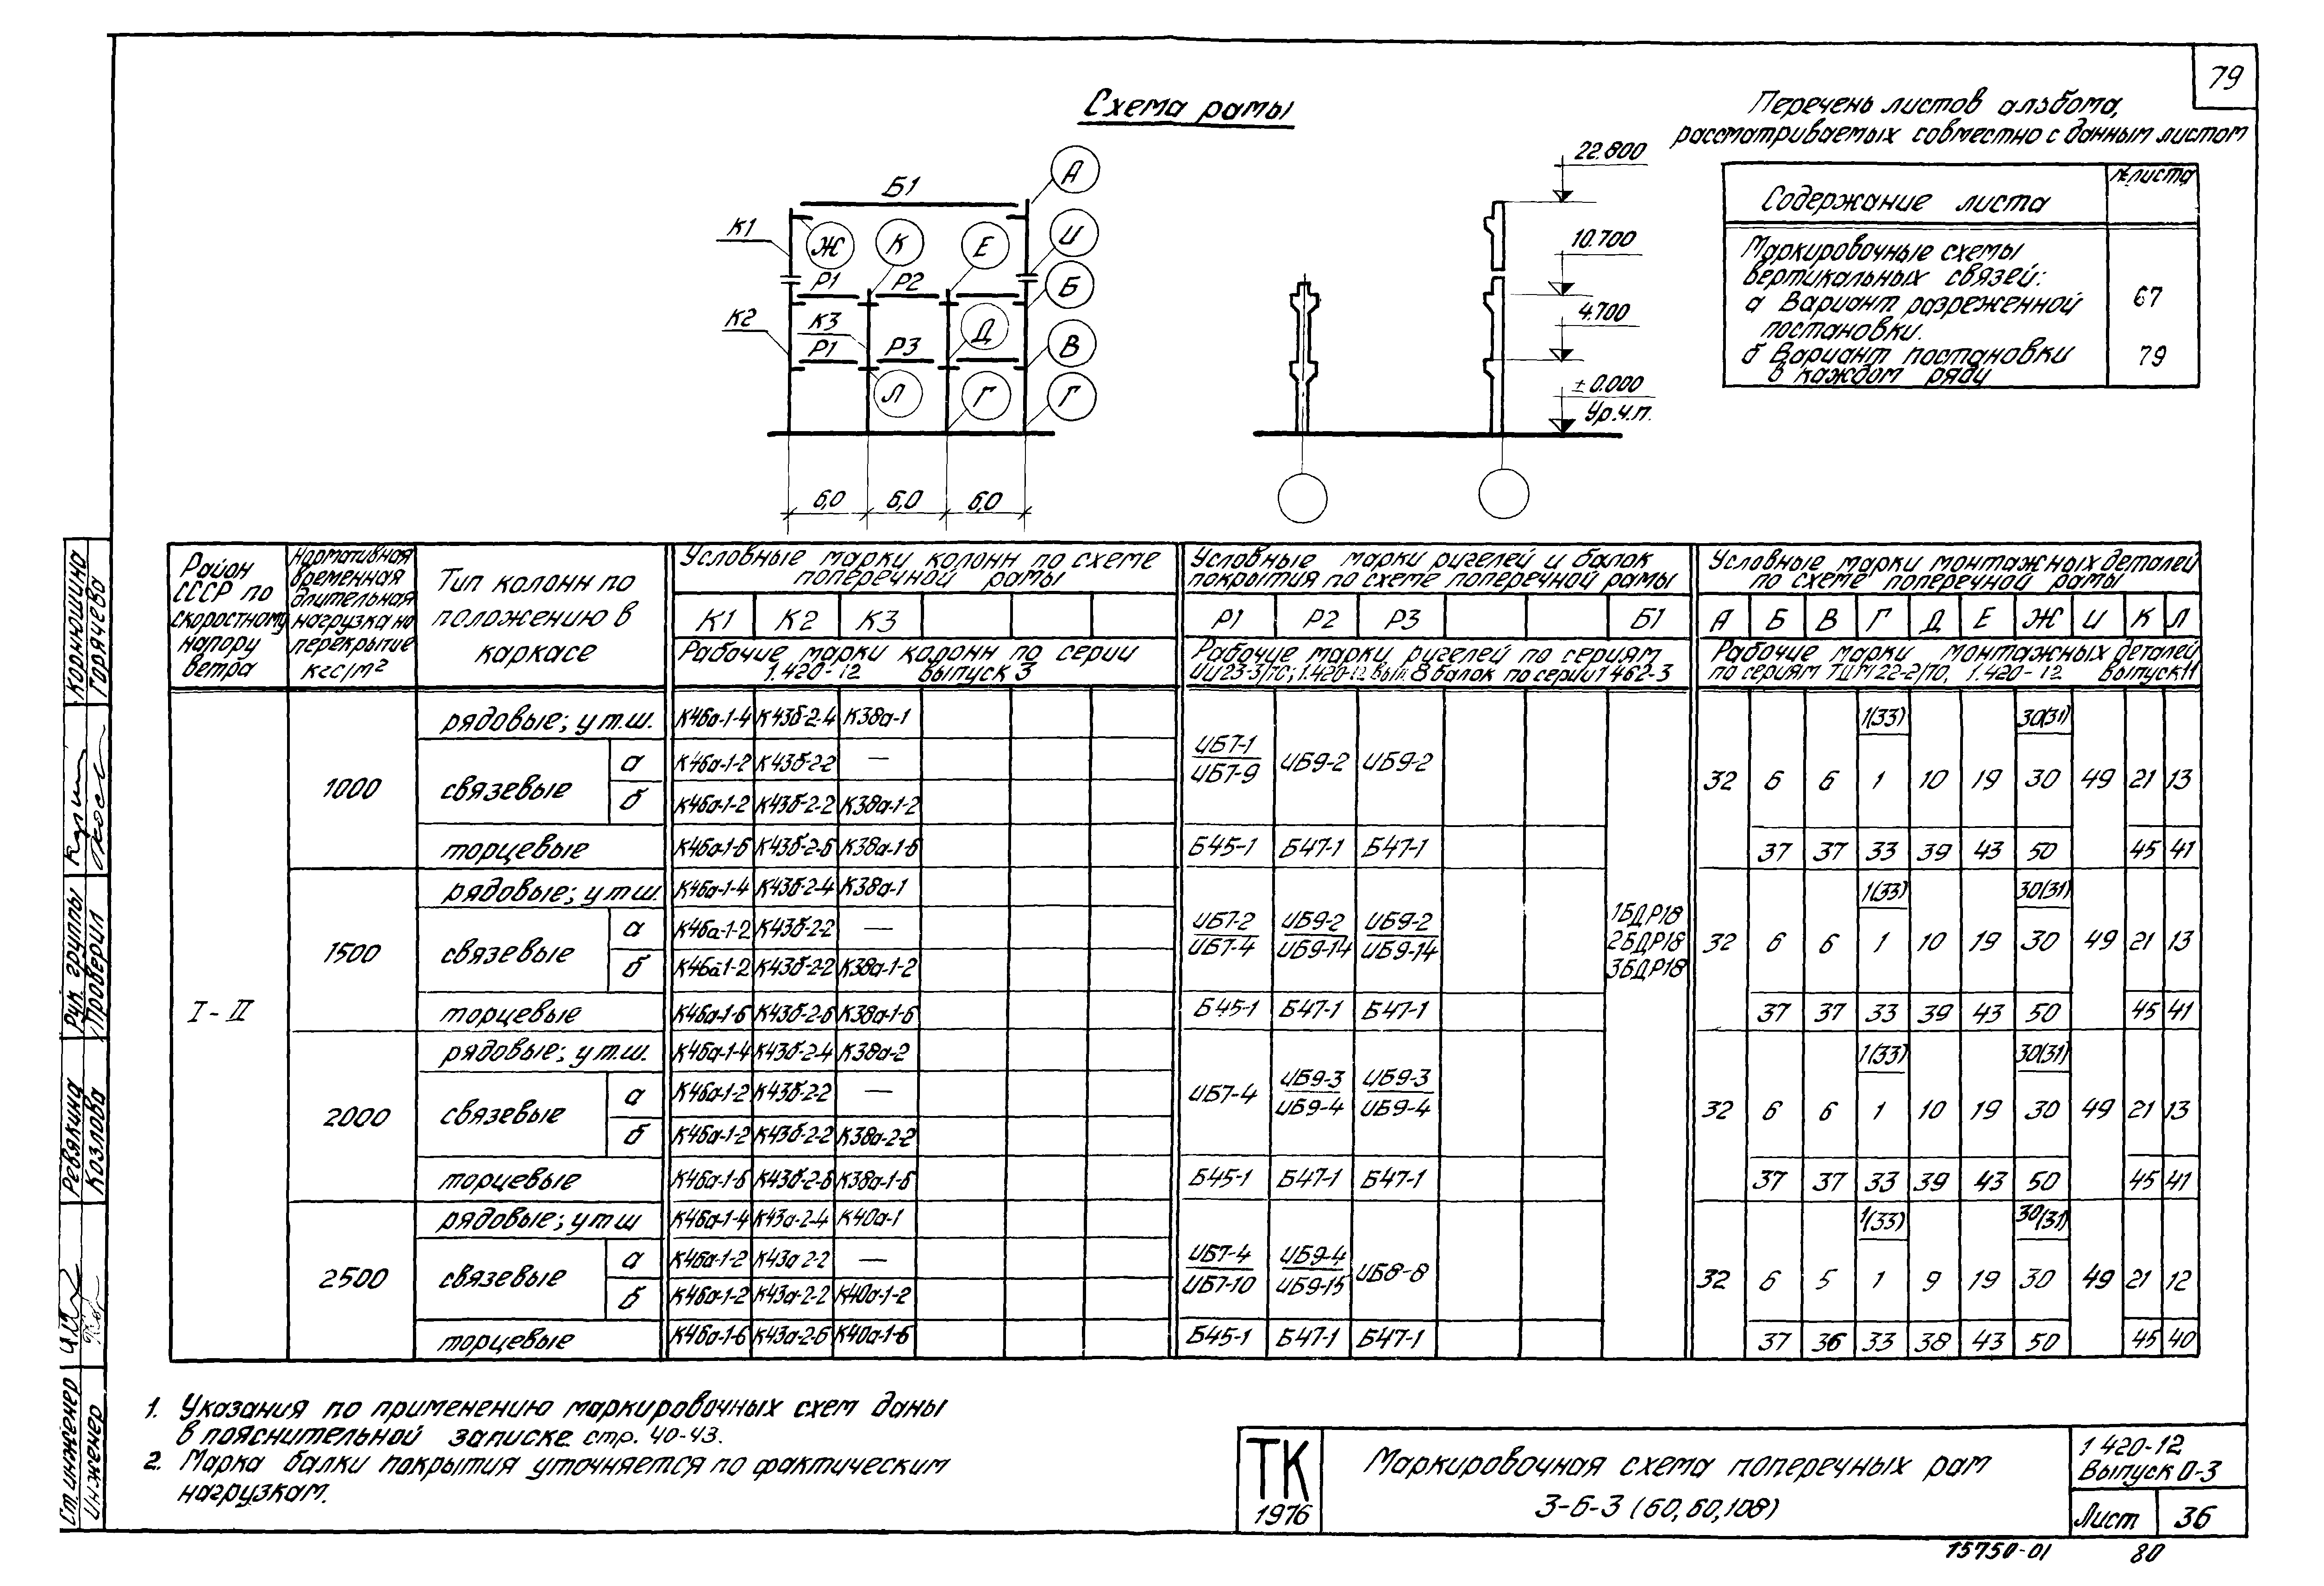 79
Схема рамы
Перечень листов альбома,
рассматриваемых совместно с данным листом
Содержание листа
№ листа
Маркировочные схемы
вертикальных связей:
а Вариант разреженной
постановки.
67
б Вариант постановки
в каждом ряду
79
Б1
А
К1
Ж
К
Е
И
Р1
Р2
Б
К2
К3
Д
Р1
Р3
В
Л
Г
Г
6,0
6,0
6,0
22.800
10.700
4.700
± 0.000
Ур.ч.п.
Район
СССР по
скоростному
напору
ветра
Нормативная
временная
длительная
нагрузка на
перекрытие
кгс/м²
Тип колонн по
положению в
каркасе
Условные марки колонн по схеме
поперечной рамы
К1 К2 К3
Рабочие марки колонн по серии
1.420-12 выпуск 3
Условные марки ригелей и балок
покрытия по схеме поперечной рамы
Р1 Р2 Р3 Б1
Рабочие марки ригелей по сериям
ИИ23-3/70; 1.420-12 вып. 8 балок по серии 1 462-3
Условные марки монтажных деталей
по схеме поперечной рамы
А Б В Г Д Е Ж И К Л
Рабочие марки монтажных деталей
по сериям ТДМ22-2/70, 1.420-12 выпуск 11
I - II
1000
рядовые; у т.ш. К46а-1-4 К43б-2-4 К38а-1 1(33) 30(31)
связевые
а К46а-1-2 К43б-2-2 —
б К46а-1-2 К43б-2-2 К38а-1-2
ИБ7-1
ИБ7-9 ИБ9-2 ИБ9-2
32 6 6 1 10 19 30 49 21 13
торцевые К46а-1-6 К43б-2-6 К38а-1-6 Б45-1 Б47-1 Б47-1 37 37 33 39 43 50 45 41
1500
рядовые; у т.ш. К46а-1-4 К43б-2-4 К38а-1 1(33) 30(31)
связевые
а К46а-1-2 К43б-2-2 —
б К46а-1-2 К43б-2-2 К38а-1-2
ИБ7-2 ИБ9-2 ИБ9-2
ИБ7-4 ИБ9-14 ИБ9-14
1БДР18
2БДР18
3БДР18
32 6 6 1 10 19 30 49 21 13
торцевые К46а-1-6 К43б-2-6 К38а-1-6 Б45-1 Б47-1 Б47-1 37 37 33 39 43 50 45 41
2000
рядовые; у т.ш. К46а-1-4 К43б-2-4 К38а-2 1(33) 30(31)
связевые
а К46а-1-2 К43б-2-2 —
б К46а-1-2 К43б-2-2 К38а-2-2
ИБ7-4 ИБ9-3 ИБ9-3
ИБ9-4 ИБ9-4
32 6 6 1 10 19 30 49 21 13
торцевые К46а-1-6 К43б-2-6 К38а-1-6 Б45-1 Б47-1 Б47-1 37 37 33 39 43 50 45 41
2500
рядовые; у т ш К46а-1-4 К43а-2-4 К40а-1 1(33) 30(31)
связевые
а К46а-1-2 К43а 2-2 —
б К46а-1-2 К43а-2-2 К40а-1-2
ИБ7-4 ИБ9-4 ИБ8-8
ИБ7-10 ИБ9-15
32 6 5 1 9 19 30 49 21 12
торцевые К46а-1-6 К43а-2-6 К40а-1-6 Б45-1 Б47-1 Б47-1 37 36 33 38 43 50 45 40
1. Указания по применению маркировочных схем даны
в пояснительной записке стр. 40-43.
2. Марка балки покрытия уточняется по фактическим
нагрузкам.
ТК
1976
Маркировочная схема поперечных рам
3-6-3 (60, 60, 108)
1 420-12
Выпуск 0-3
Лист 36
15750-01 80
Ст. инженер Ревякина Рук. группы Корнюшина
Инженер Козлова Проверил Горячева